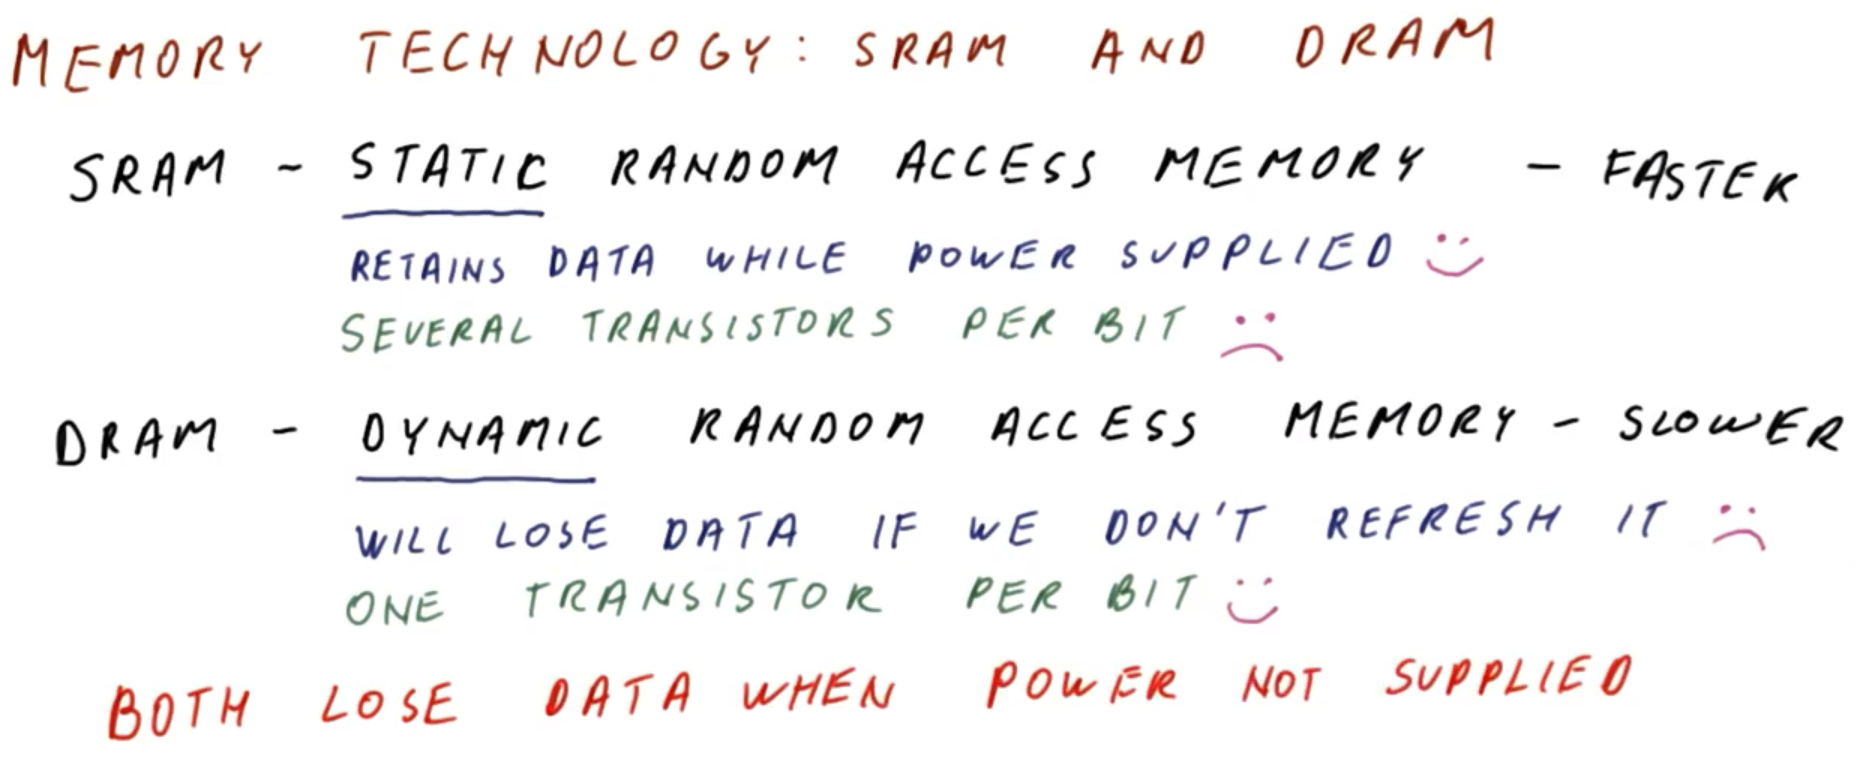 MEMORY TECHNOLOGY: SRAM AND DRAM
SRAM - STATIC RANDOM ACCESS MEMORY - FASTER
RETAINS DATA WHILE POWER SUPPLIED
SEVERAL TRANSISTORS PER BIT
DRAM - DYNAMIC RANDOM ACCESS MEMORY - SLOWER
WILL LOSE DATA IF WE DON'T REFRESH IT
ONE TRANSISTOR PER BIT
BOTH LOSE DATA WHEN POWER NOT SUPPLIED